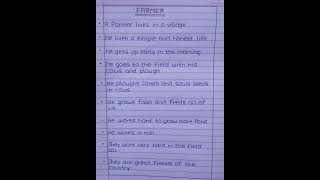 FARMER
• A Farmer lives in a village
• He lives a simple and honest life.
• He gets up early in the morning.
• He goes to the field with his
cows and plough
• He ploughs lands and sows seeds
in rows
• He grows food and feeds all of
us.
• He works hard to grow more food
• He works in rain
• They work very hard in the field
all
• They are great friends of the
country.